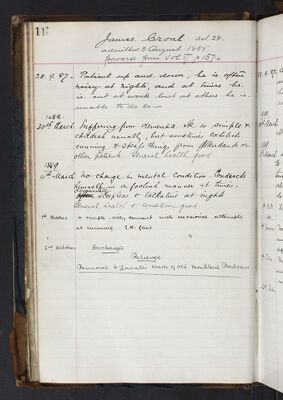 117
James Croal aet 28.
admitted 8 August 1885
forward from Vol p 157
28.9.87. Patient up and down, he is often
noisy at nights, and at times he
is out at work but at others he is
unable to do so
1988
30th March Suffering from dementia. He is simple &
childish usually, but sometimes exhibits
cunning & steals things from Attendants or
other patients. General health good
1889
4th March No change in mental condition. Conducts
himself in a foolish manner at times.
occasionally
sleepless & talkative at night
General health & condition good.
1st October a simple silly dement with occasional attempts
at cunning G.H. fair
2nd October Discharged
Relieved
Removed to Lunatic Wards of Old Monkland Poorhouse